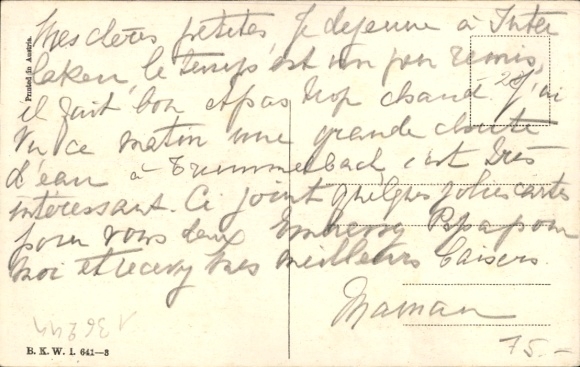 Mes chères petites Je déjeune à Inter
laken, le temps s'est un peu remis,
il fait bon et pas trop chaud. J'ai
vu ce matin une grande chute
d'eau à Trummelbach c'est très
interessant. Ci joint quelques jolies cartes
pour vous deux Embrassez Papa pour
moi et recevez mes meilleurs baisers.
Maman
75.-
B. K. W. I. 641—8
Printed in Austria.